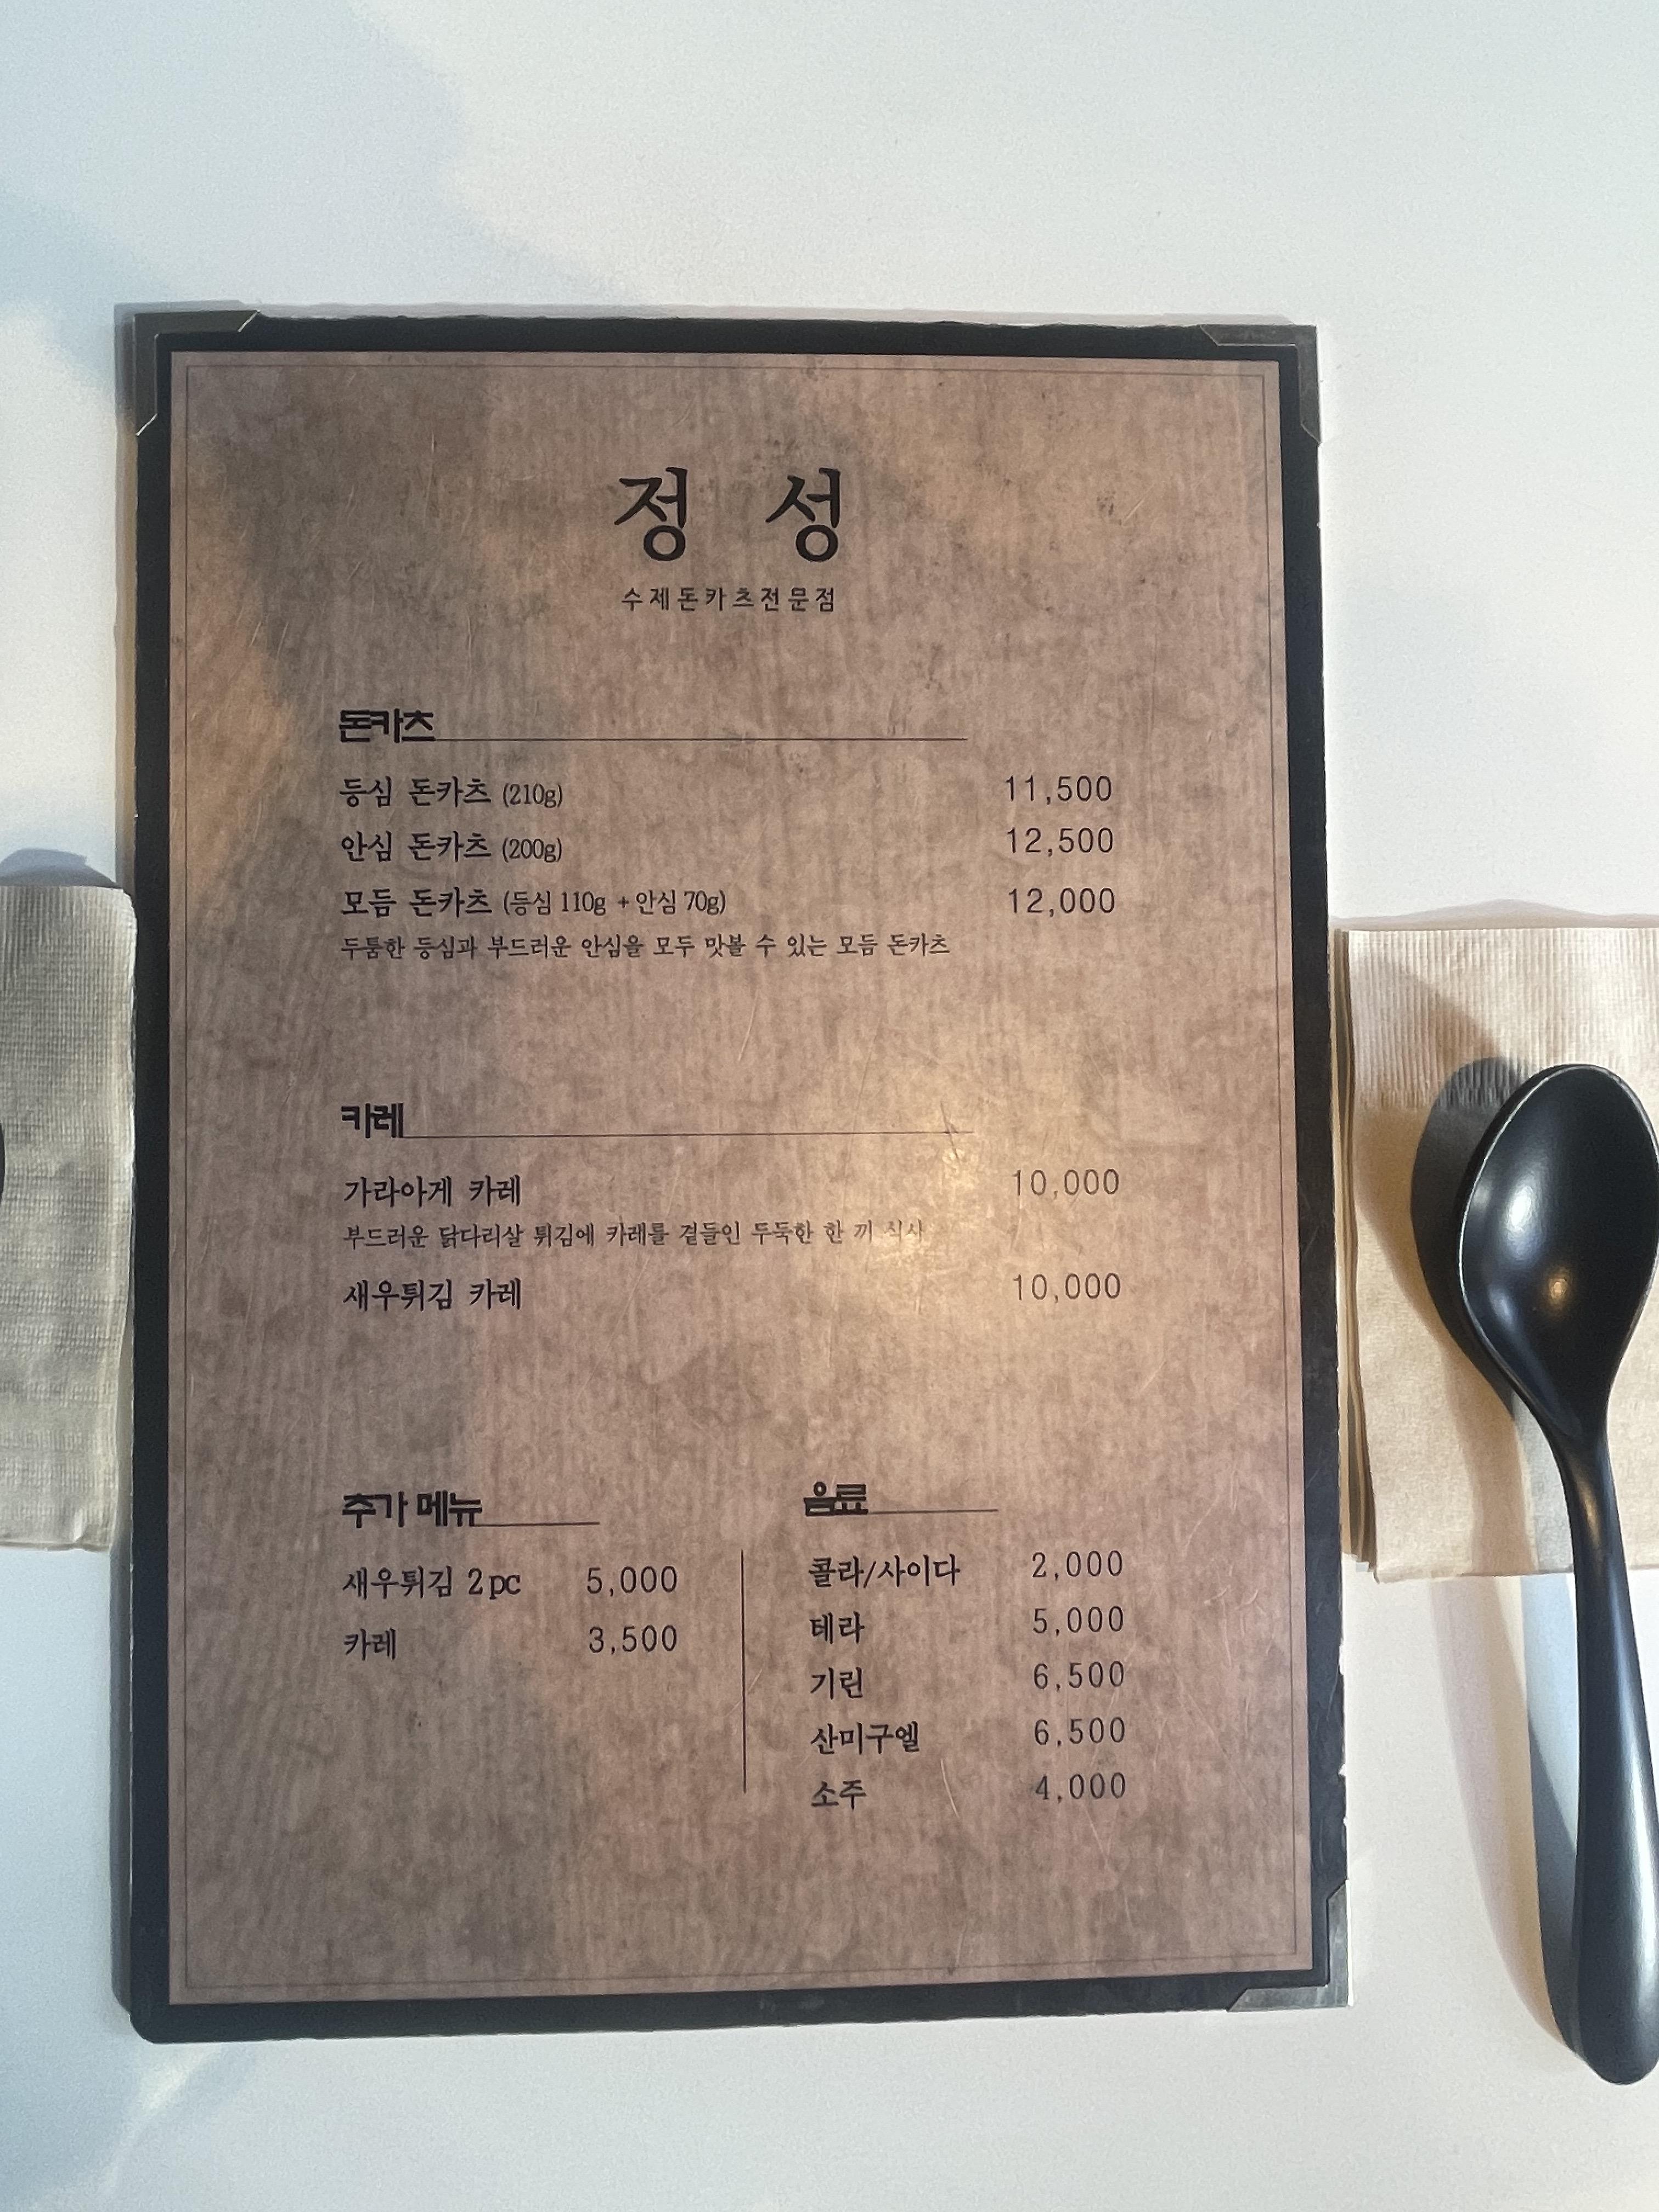 정 성
수제돈카츠전문점
돈카츠
등심 돈카츠 (210g) 11,500
안심 돈카츠 (200g) 12,500
모듬 돈카츠 (등심 110g + 안심 70g) 12,000
두툼한 등심과 부드러운 안심을 모두 맛볼 수 있는 모듬 돈카츠
카레
가라아게 카레 10,000
부드러운 닭다리살 튀김에 카레를 곁들인 두둑한 한 끼 식사
새우튀김 카레 10,000
추가 메뉴
새우튀김 2pc 5,000
카레 3,500
음료
콜라/사이다 2,000
테라 5,000
기린 6,500
산미구엘 6,500
소주 4,000